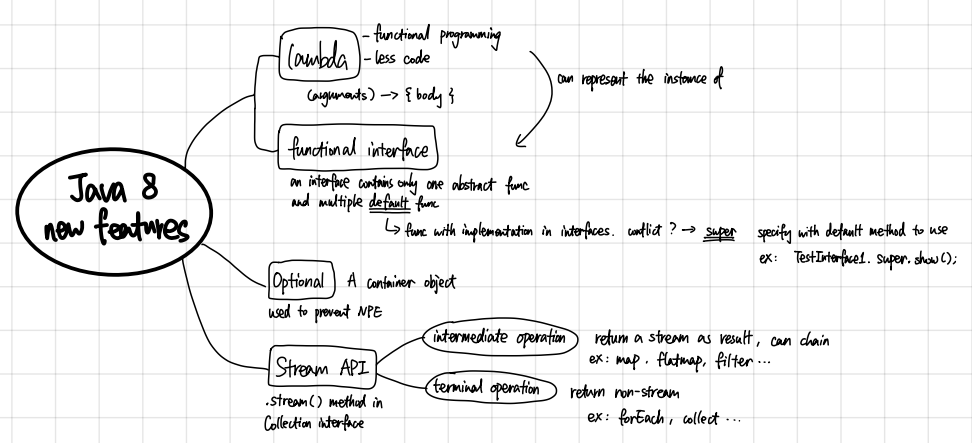 Java 8
new features
Lambda
- functional programming
- less code
(arguments) → { body }
can represent the instance of
functional interface
an interface contains only one abstract func
and multiple default func
↳ func with implementation in interfaces. conflict ? → super specify with default method to use
ex: TestInterface1. super. show();
Optional A container object
used to prevent NPE
Stream API
.stream() method in
Collection interface
intermediate operation return a stream as result, can chain
ex: map. flatmap, filter ...
terminal operation return non-stream
ex: forEach, collect ...